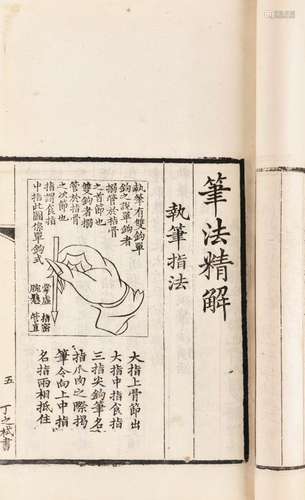 筆法精解
執筆指法
執筆有雙鉤單
鉤之說單鉤者
搦管於指骨
之首節也
雙鉤者搦
管於指骨
之次節也
指謂食指
中指此圖係單鉤式
指密
管直
掌虛
腕懸
大指上骨節出
大指中指食指
三指尖鉤筆名
指爪肉之際揭
筆令向上中指
名指兩相抵住
五
丁之書